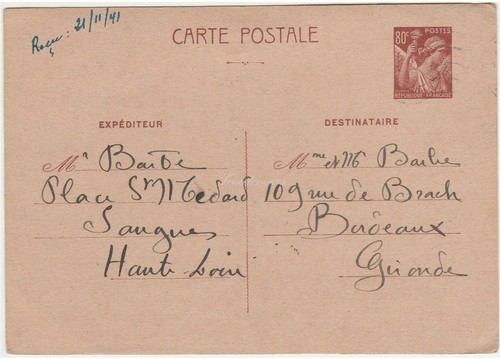 Reçu : 21/11/41
CARTE POSTALE
80c
POSTES
RÉPUBLIQUE FRANÇAISE
EXPÉDITEUR
Mr Barbe
Place St Medard
Saugues
Haute Loire
DESTINATAIRE
Mme et Mr Barbe
109 rue de Brach
Bordeaux
Gironde